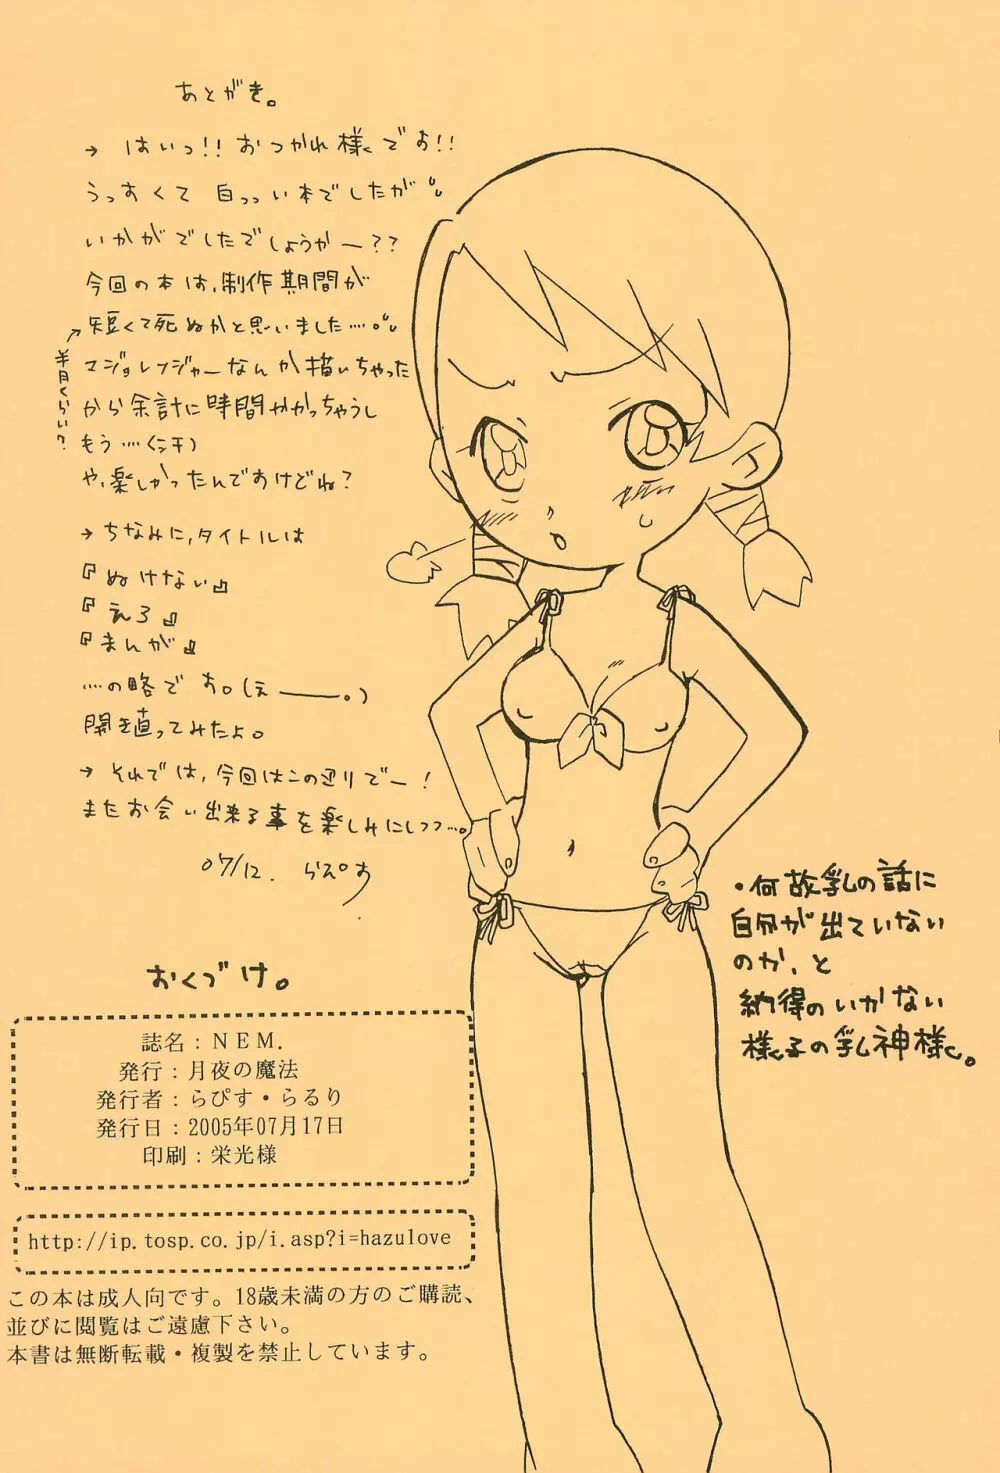 あとがき。
→ はいっ!! おつかれ様でお!!
うっすくて 白っっい本でしたが
いかがでしたでしょうかー??
今回の本は、制作期間が
短くて死ぬかと思いました…。
半月くらい?
マジョレンジャーなんか描いちゃった
から余計に時間かかっちゃうし
もう…
や、楽しかったんですけどね?
→ ちなみに、タイトルは
『ぬけない』
『えろ』
『まんが』
…の略でお。(えー。)
開き直ってみたよ。
→ それでは、今回はこの辺りでー!
またお会い出来る事を楽しみにしつつ…。
07/12. らぴす
・何故乳の話に
自分が出ていない
のか、と
納得のいかない
様子の乳神様。
おくづけ。
誌名：NEM.
発行：月夜の魔法
発行者：らぴす・らるり
発行日：2005年07月17日
印刷：栄光様
http://ip.tosp.co.jp/i.asp?i=hazulove
この本は成人向です。18歳未満の方のご購読、
並びに閲覧はご遠慮下さい。
本書は無断転載・複製を禁止しています。